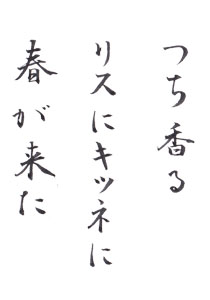 つち香る
リスにキツネに
春が来た